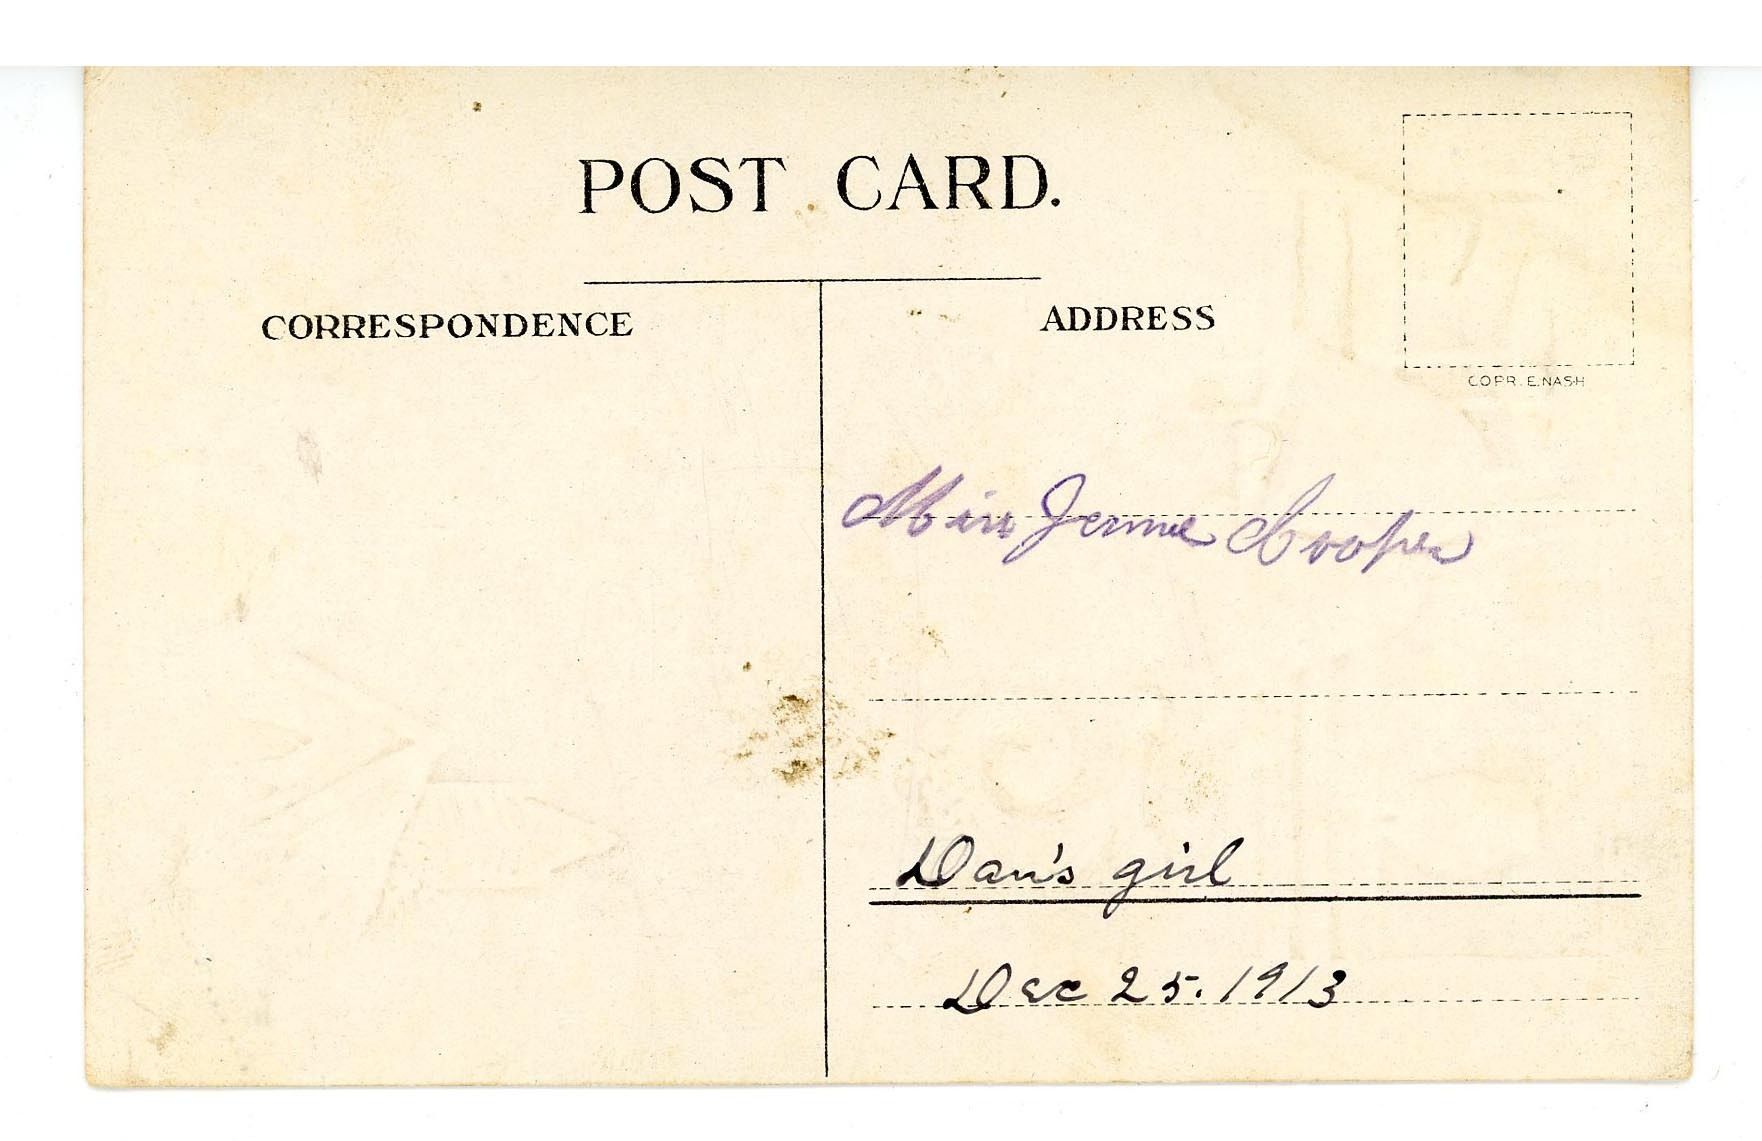 POST CARD.
CORRESPONDENCE
ADDRESS
COPR. E. NASH
Miss Jennie Cooper
Dan's girl
Dec 25. 1913